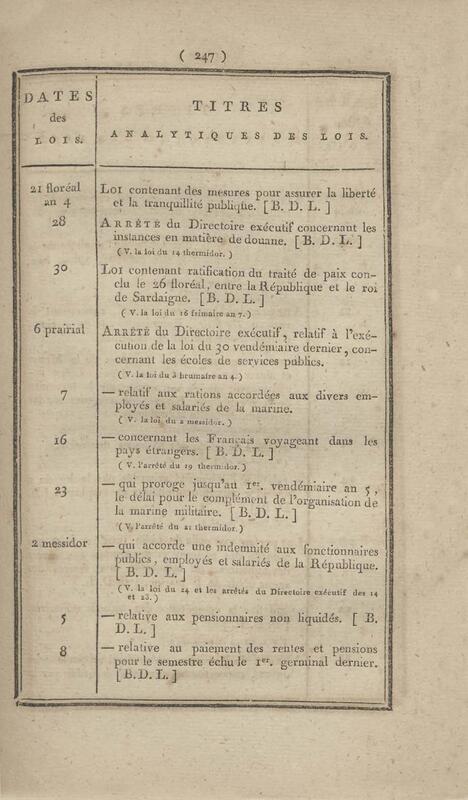 ( 247 )
DATES
des
LOIS.
TITRES
ANALYTIQUES DES LOIS.
21 floréal
an 4
LOI contenant des mesures pour assurer la liberté
et la tranquillité publique. [ B. D. L. ]
28
ARRÊTÉ du Directoire exécutif concernant les
instances en matière de douane. [ B. D. L. ]
( V. la loi du 14 thermidor. )
30
LOI contenant ratification du traité de paix con-
clu le 26 floréal, entre la République et le roi
de Sardaigne. [ B. D. L. ]
( V. la loi du 16 frimaire an 7. )
6 prairial
ARRÊTÉ du Directoire exécutif, relatif à l'exé-
cution de la loi du 30 vendémiaire dernier, con-
cernant les écoles de services publics.
( V. la loi du 3 brumaire an 4. )
7
— relatif aux rations accordées aux divers em-
ployés et salariés de la marine.
( V. la loi du 2 messidor. )
16
— concernant les Français voyageant dans les
pays étrangers. [ B. D. L. ]
( V. l'arrêté du 19 thermidor. )
23
— qui proroge jusqu'au 1er. vendémiaire an 5,
le délai pour le complément de l'organisation de
la marine militaire. [ B. D. L. ]
( V. l'arrêté du 21 thermidor. )
2 messidor
— qui accorde une indemnité aux fonctionnaires
publics, employés et salariés de la République.
[ B. D. L. ]
( V. la loi du 24 et les arrêtés du Directoire exécutif des 14
et 23. )
5
— relative aux pensionnaires non liquidés. [ B.
D. L. ]
8
— relative au paiement des rentes et pensions
pour le semestre échu le 1er. germinal dernier.
[ B. D. L. ]